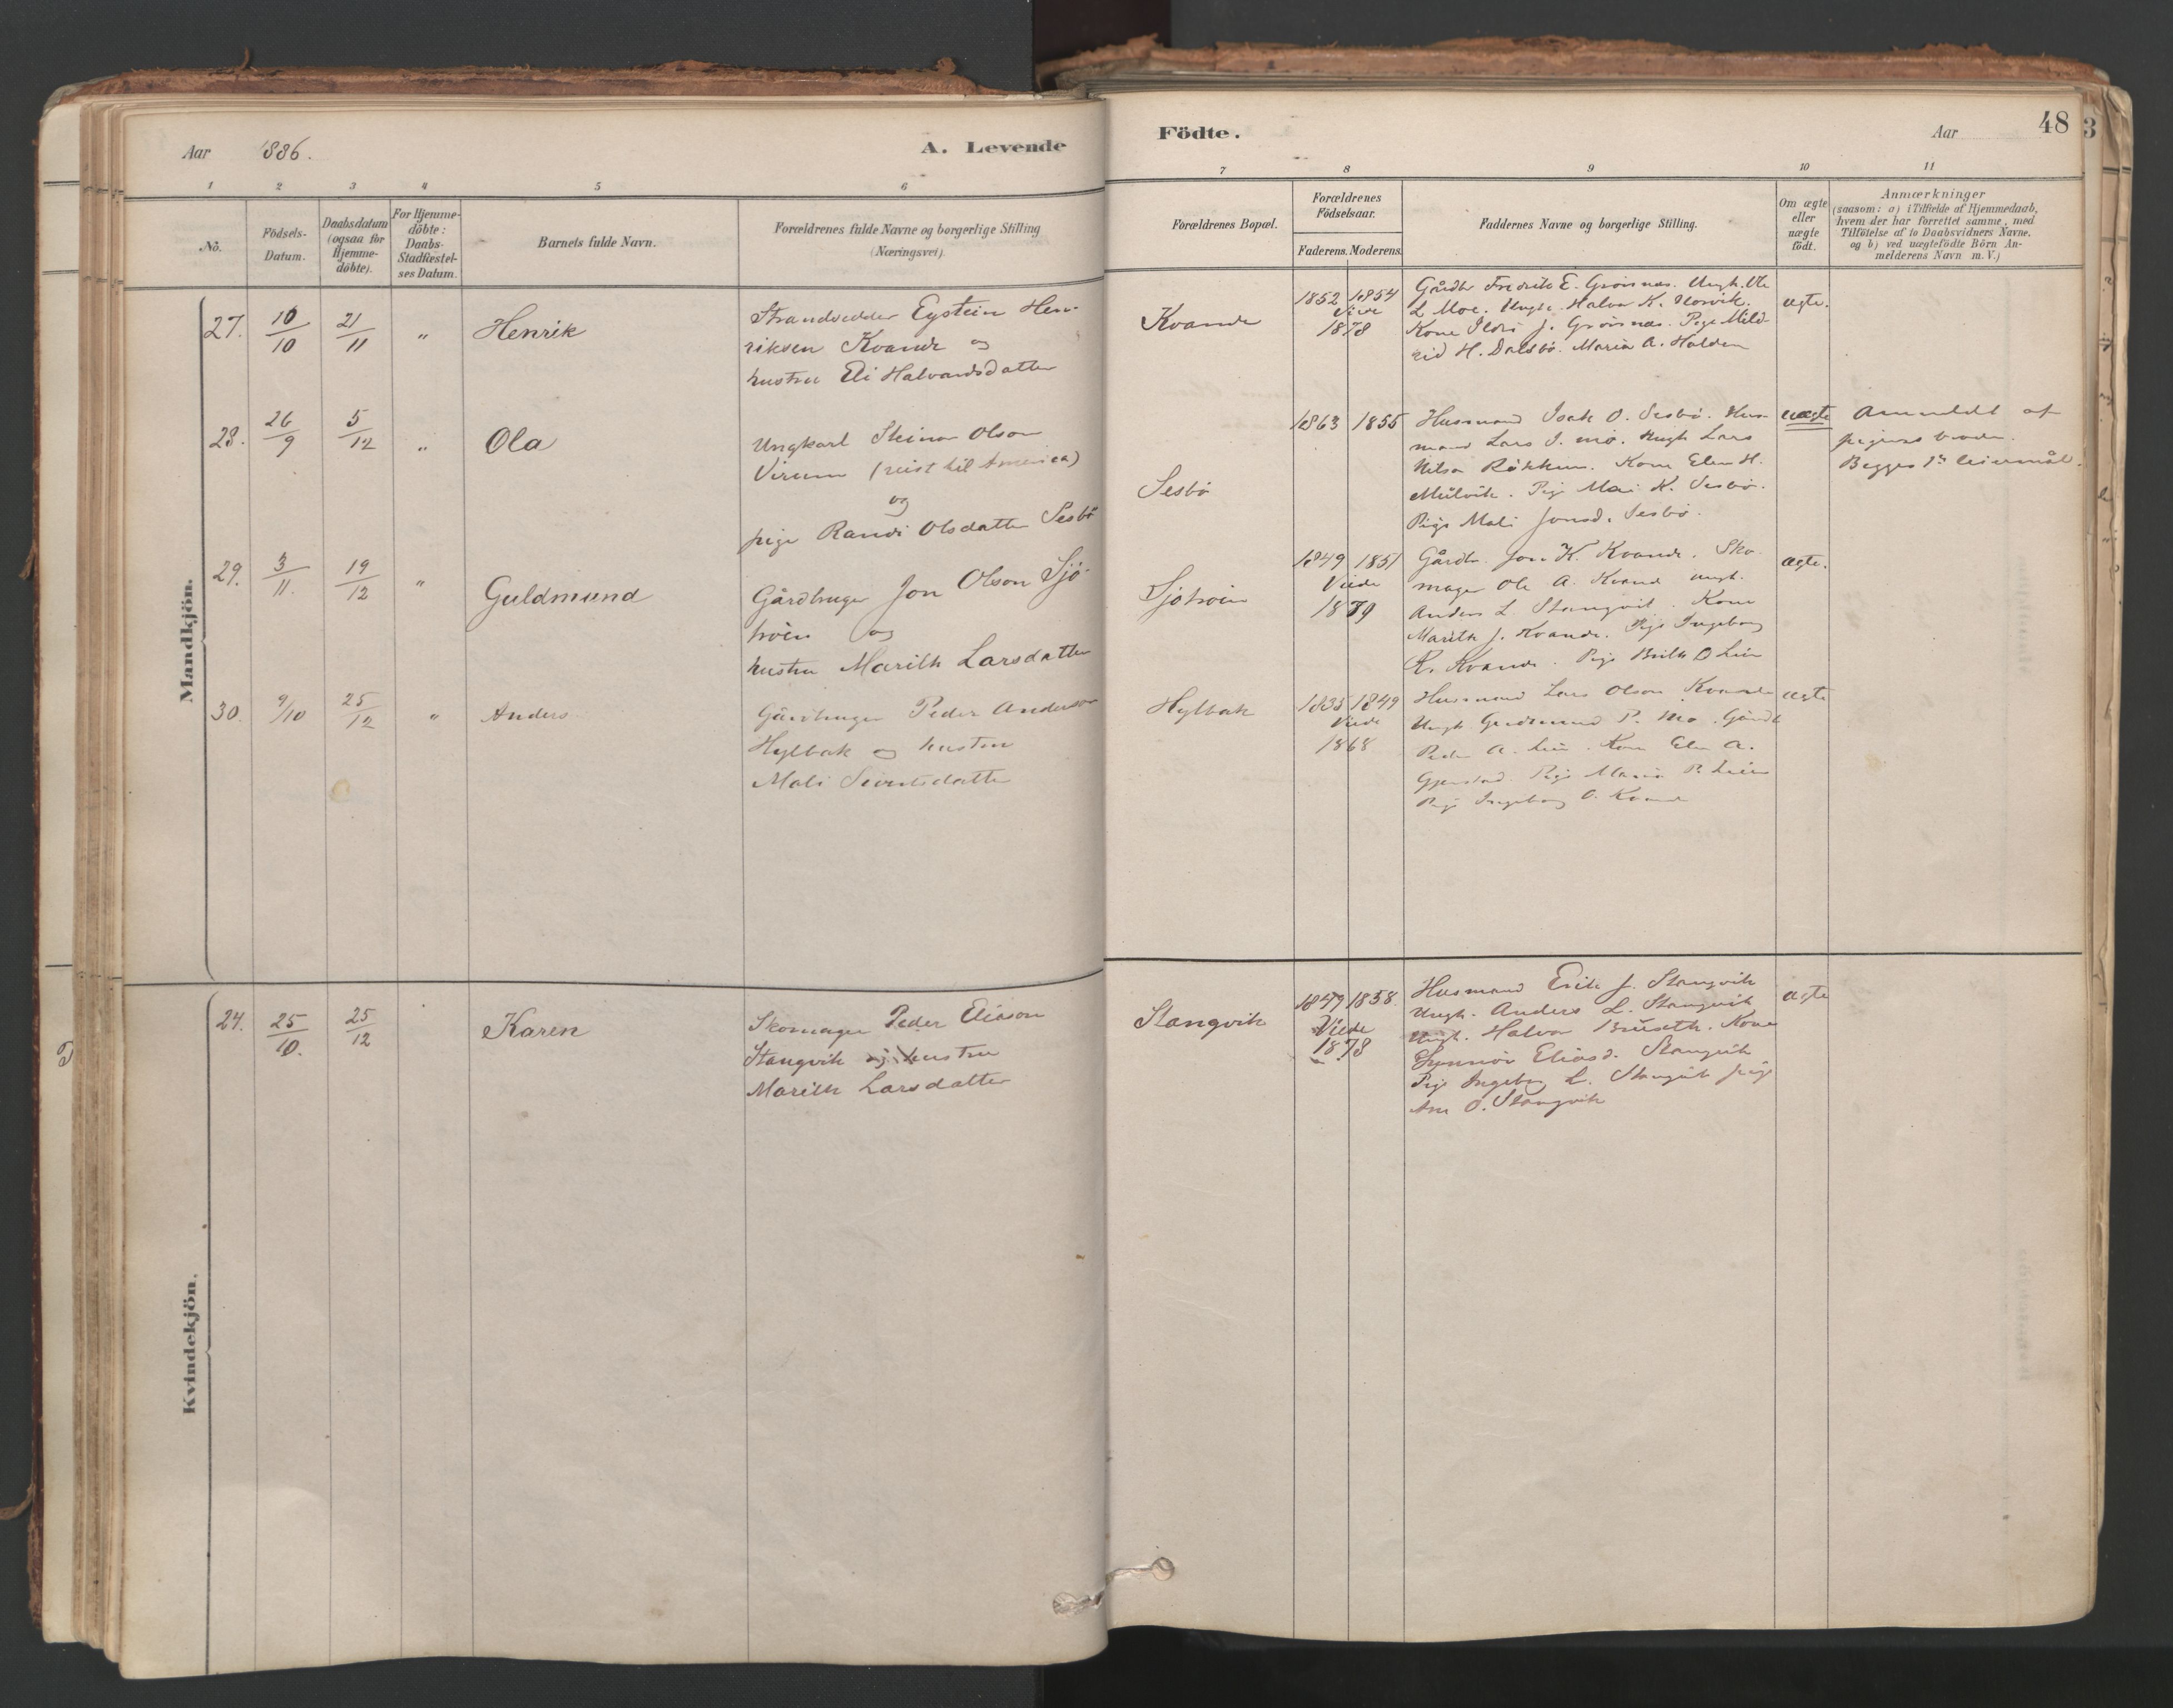 Aar 1886.
A. Levende
Födte.
Aar
48
1 2 3 4 5 6 7 8 9 10 11
No.
Födsels-
Datum.
Daabsdatum
(ogsaa for
Hjemme-
döbte).
For Hjemme-
döbte:
Daabs-
Stadfæstel-
ses Datum.
Barnets fulde Navn.
Forældrenes fulde Navne og borgerlige Stilling
(Næringsvei).
Forældrenes Bopæl.
Forældrenes
Födselsaar.
Faderens. Moderens.
Faddernes Navne og borgerlige Stilling.
Om ægte
eller
uægte
födt.
Anmærkninger
(saasom: a) i Tilfælde af Hjemmedaab,
hvem der har forrettet samme, med
Tilföielse af to Daabsvidners Navne.
og b) ved uægtefödte Börn An-
melderens Navn m. V.)
Mandkjön.
27. 10/10 21/11 " Henrik
Strandsidder Eystein Hen-
riksen Kvande og
hustru Eli Halvardsdatter
Kvande
1852 1854
Viede
1878
Gårdbr Fredrik E. Grönnes. Ungk. Ole
L. Moe. Ungk. Halvor K. Norvik.
Kone Ildri J. Grönnes. Pige Mild-
rid H. Dalsbö. Maria A. Halden
ægte.
28. 26/9 5/12 " Ola
Ungkarl Steinar Olson
Virum (reist til America)
og
pige Randi Olsdatter Sesbö
Sesbö
1863 1855
Husmand Isak O. Sesbö. Hus-
mand Lars I. Mo. Ungk Lars
Nilsen Rökkum. Kone Elen H.
Mulvik. Pige Mari K. Sesbö.
Pige Mali Jonsd. Sesbö.
uægte
Anmeldt af
pigens broder.
Begges 1ste leiermål.
29. 3/11. 19/12 " Guldmund
Gårdbruger Jon Olson Sjö-
troen og
hustru Marith Larsdatter
Sjötroen
1849 1851
Viede
1879
Gårdbr. Jon K. Kvande. Sko-
mager Ole A. Kvande Ungk.
Anders L. Stangvik. Kone
Marith J. Kvande. Pige Ingeborg
K. Kvande. Pige Brith O Lien
ægte.
30. 9/10 25/12 " Anders
Gårdbruger Peder Anderson
Hylbak og hustru
Mali Sivertsdatter
Hylbak
1835 1849
Viede
1868
Husmand Lars Olson Kvande
Ungk Gudmund P. Mo. Gårdb
Peder A. Lien. Kone Elen A.
Gjenstad. Pige Maria P. Lien
Pige Ingeborg O. Kvande
ægte
Kvindekjön.
24. 25/10. 25/12 Karen
Skomager Peder Eliason
Stangvik og hustru
Marith Larsdatter
Stangvik
1849 1858.
Viede
1878
Husmand Erik J. Stangvik
Ungk. Anders L. Stangvik
Ungk. Halvor Bruseth. Kone
Synnöv Eliasd. Stangvik
Pige Ingeborg L. Stangvik pige
Ane O. Stangvik
ægte